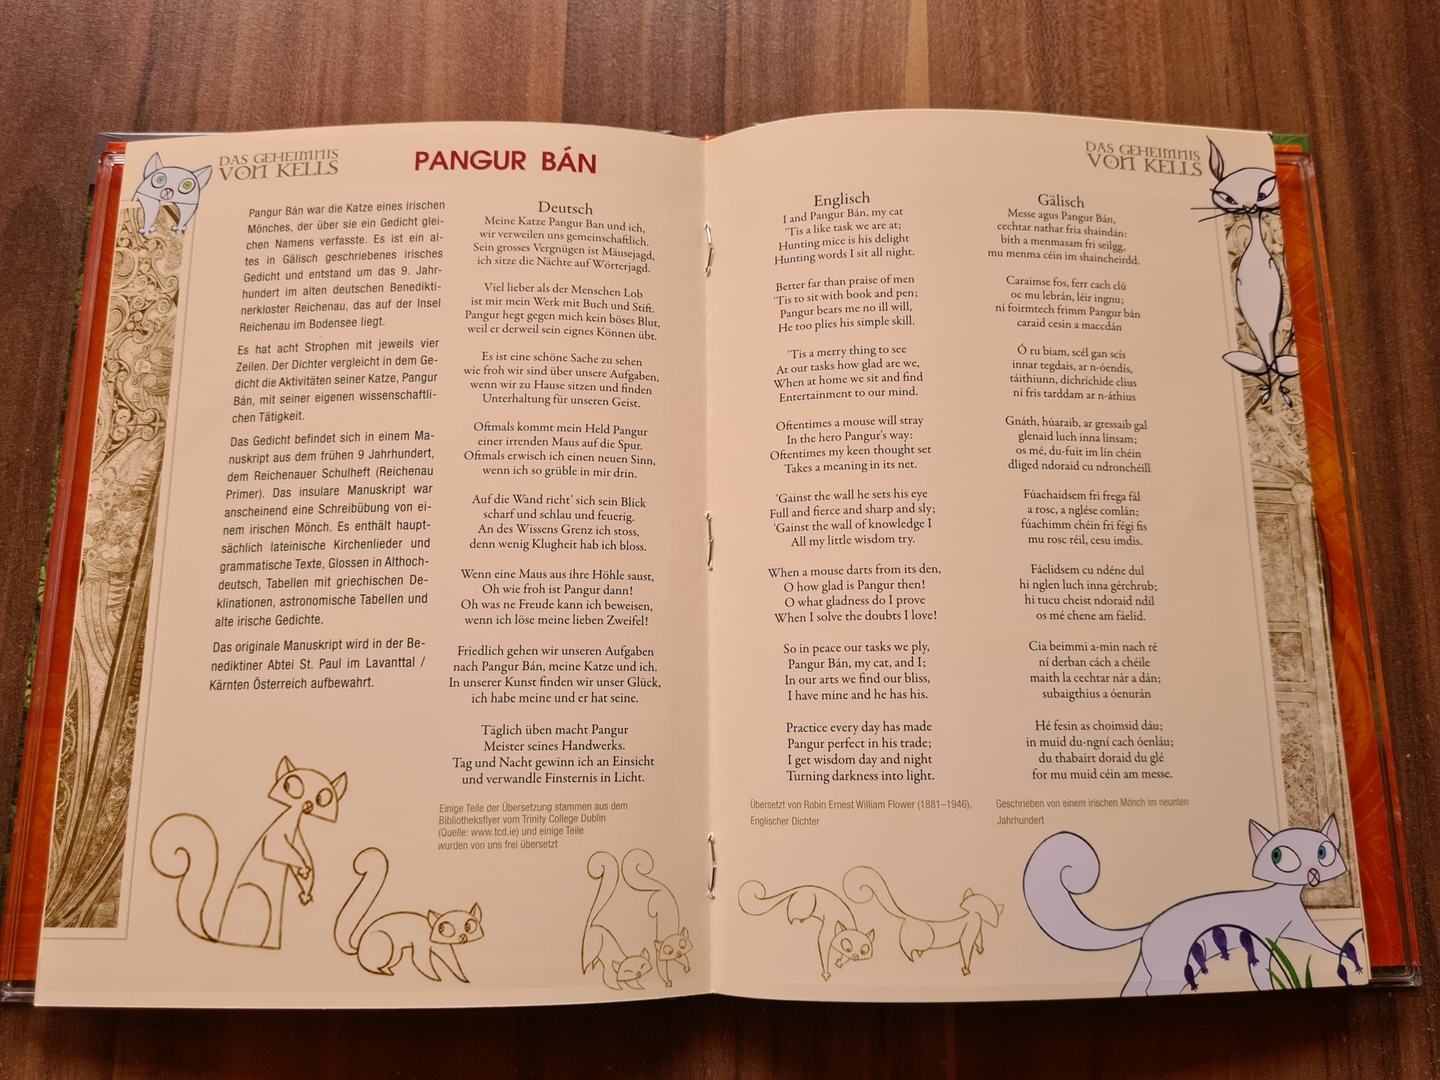 DAS GEHEIMNIS
VON KELLS
PANGUR BÁN
Pangur Bán war die Katze eines irischen
Mönches, der über sie ein Gedicht glei-
chen Namens verfasste. Es ist ein al-
tes in Gälisch geschriebenes irisches
Gedicht und entstand um das 9. Jahr-
hundert im alten deutschen Benedikti-
nerkloster Reichenau, das auf der Insel
Reichenau im Bodensee liegt.
Es hat acht Strophen mit jeweils vier
Zeilen. Der Dichter vergleicht in dem Ge-
dicht die Aktivitäten seiner Katze, Pangur
Bán, mit seiner eigenen wissenschaftli-
chen Tätigkeit.
Das Gedicht befindet sich in einem Ma-
nuskript aus dem frühen 9 Jahrhundert,
dem Reichenauer Schulheft (Reichenau
Primer). Das insulare Manuskript war
anscheinend eine Schreibübung von ei-
nem irischen Mönch. Es enthält haupt-
sächlich lateinische Kirchenlieder und
grammatische Texte, Glossen in Althoch-
deutsch, Tabellen mit griechischen De-
klinationen, astronomische Tabellen und
alte irische Gedichte.
Das originale Manuskript wird in der Be-
nediktiner Abtei St. Paul im Lavanttal /
Kärnten Österreich aufbewahrt.
Deutsch
Meine Katze Pangur Ban und ich,
wir verweilen uns gemeinschaftlich.
Sein grosses Vergnügen ist Mäusejagd,
ich sitze die Nächte auf Wörterjagd.
Viel lieber als der Menschen Lob
ist mir mein Werk mit Buch und Stift.
Pangur hegt gegen mich kein böses Blut,
weil er derweil sein eignes Können übt.
Es ist eine schöne Sache zu sehen
wie froh wir sind über unsere Aufgaben,
wenn wir zu Hause sitzen und finden
Unterhaltung für unseren Geist.
Oftmals kommt mein Held Pangur
einer irrenden Maus auf die Spur.
Oftmals erwisch ich einen neuen Sinn,
wenn ich so grüble in mir drin.
Auf die Wand richt' sich sein Blick
scharf und schlau und feuerig.
An des Wissens Grenz ich stoss,
denn wenig Klugheit hab ich bloss.
Wenn eine Maus aus ihre Höhle saust,
Oh wie froh ist Pangur dann!
Oh was ne Freude kann ich beweisen,
wenn ich löse meine lieben Zweifel!
Friedlich gehen wir unseren Aufgaben
nach Pangur Bán, meine Katze und ich.
In unserer Kunst finden wir unser Glück,
ich habe meine und er hat seine.
Täglich üben macht Pangur
Meister seines Handwerks.
Tag und Nacht gewinn ich an Einsicht
und verwandle Finsternis in Licht.
Einige Teile der Übersetzung stammen aus dem
Bibliotheksflyer vom Trinity College Dublin
(Quelle: www.tcd.ie) und einige Teile
wurden von uns frei übersetzt
Englisch
I and Pangur Bán, my cat
'Tis a like task we are at;
Hunting mice is his delight
Hunting words I sit all night.
Better far than praise of men
'Tis to sit with book and pen;
Pangur bears me no ill will,
He too plies his simple skill.
'Tis a merry thing to see
At our tasks how glad are we,
When at home we sit and find
Entertainment to our mind.
Oftentimes a mouse will stray
In the hero Pangur's way:
Oftentimes my keen thought set
Takes a meaning in its net.
'Gainst the wall he sets his eye
Full and fierce and sharp and sly;
'Gainst the wall of knowledge I
All my little wisdom try.
When a mouse darts from its den,
O how glad is Pangur then!
O what gladness do I prove
When I solve the doubts I love!
So in peace our tasks we ply,
Pangur Bán, my cat, and I;
In our arts we find our bliss,
I have mine and he has his.
Practice every day has made
Pangur perfect in his trade;
I get wisdom day and night
Turning darkness into light.
Übersetzt von Robin Ernest William Flower (1881–1946),
Englischer Dichter
DAS GEHEIMNIS
VON KELLS
Gälisch
Messe agus Pangur Bán,
cechtar nathar fria shaindán:
bíth a menmasam fri seilgg,
mu menma céin im shaincheirdd.
Caraimse fos, ferr cach clú
oc mu lebrán, léir ingnu;
ní foirmtech frimm Pangur bán
caraid cesin a maccdán
Ó ru biam, scél gan scís
innar tegdais, ar n-óendís,
táithiunn, díchríchide clius
ní fris tarddam ar n-áthius
Gnáth, húaraib, ar gressaib gal
glenaid luch inna línsam;
os mé, du-fuit im lín chéin
dliged ndoraid cu ndronchéill
Fúachaidsem fri frega fál
a rosc, a nglése comlán;
fúachimm chéin fri fégi fis
mu rosc réil, cesu imdis.
Fáelidsem cu ndéne dul
hi nglen luch inna gérchrub;
hi tucu cheist ndoraid ndil
os mé chene am fáelid.
Cia beimmi a-min nach ré
ní derban cách a chéile
maith la cechtar nár a dán;
subaigthius a óenurán
Hé fesin as choimsid dáu;
in muid du-ngní cach óenláu;
du thabairt doraid du glé
for mu muid céin am messe.
Geschrieben von einem irischen Mönch im neunten
Jahrhundert